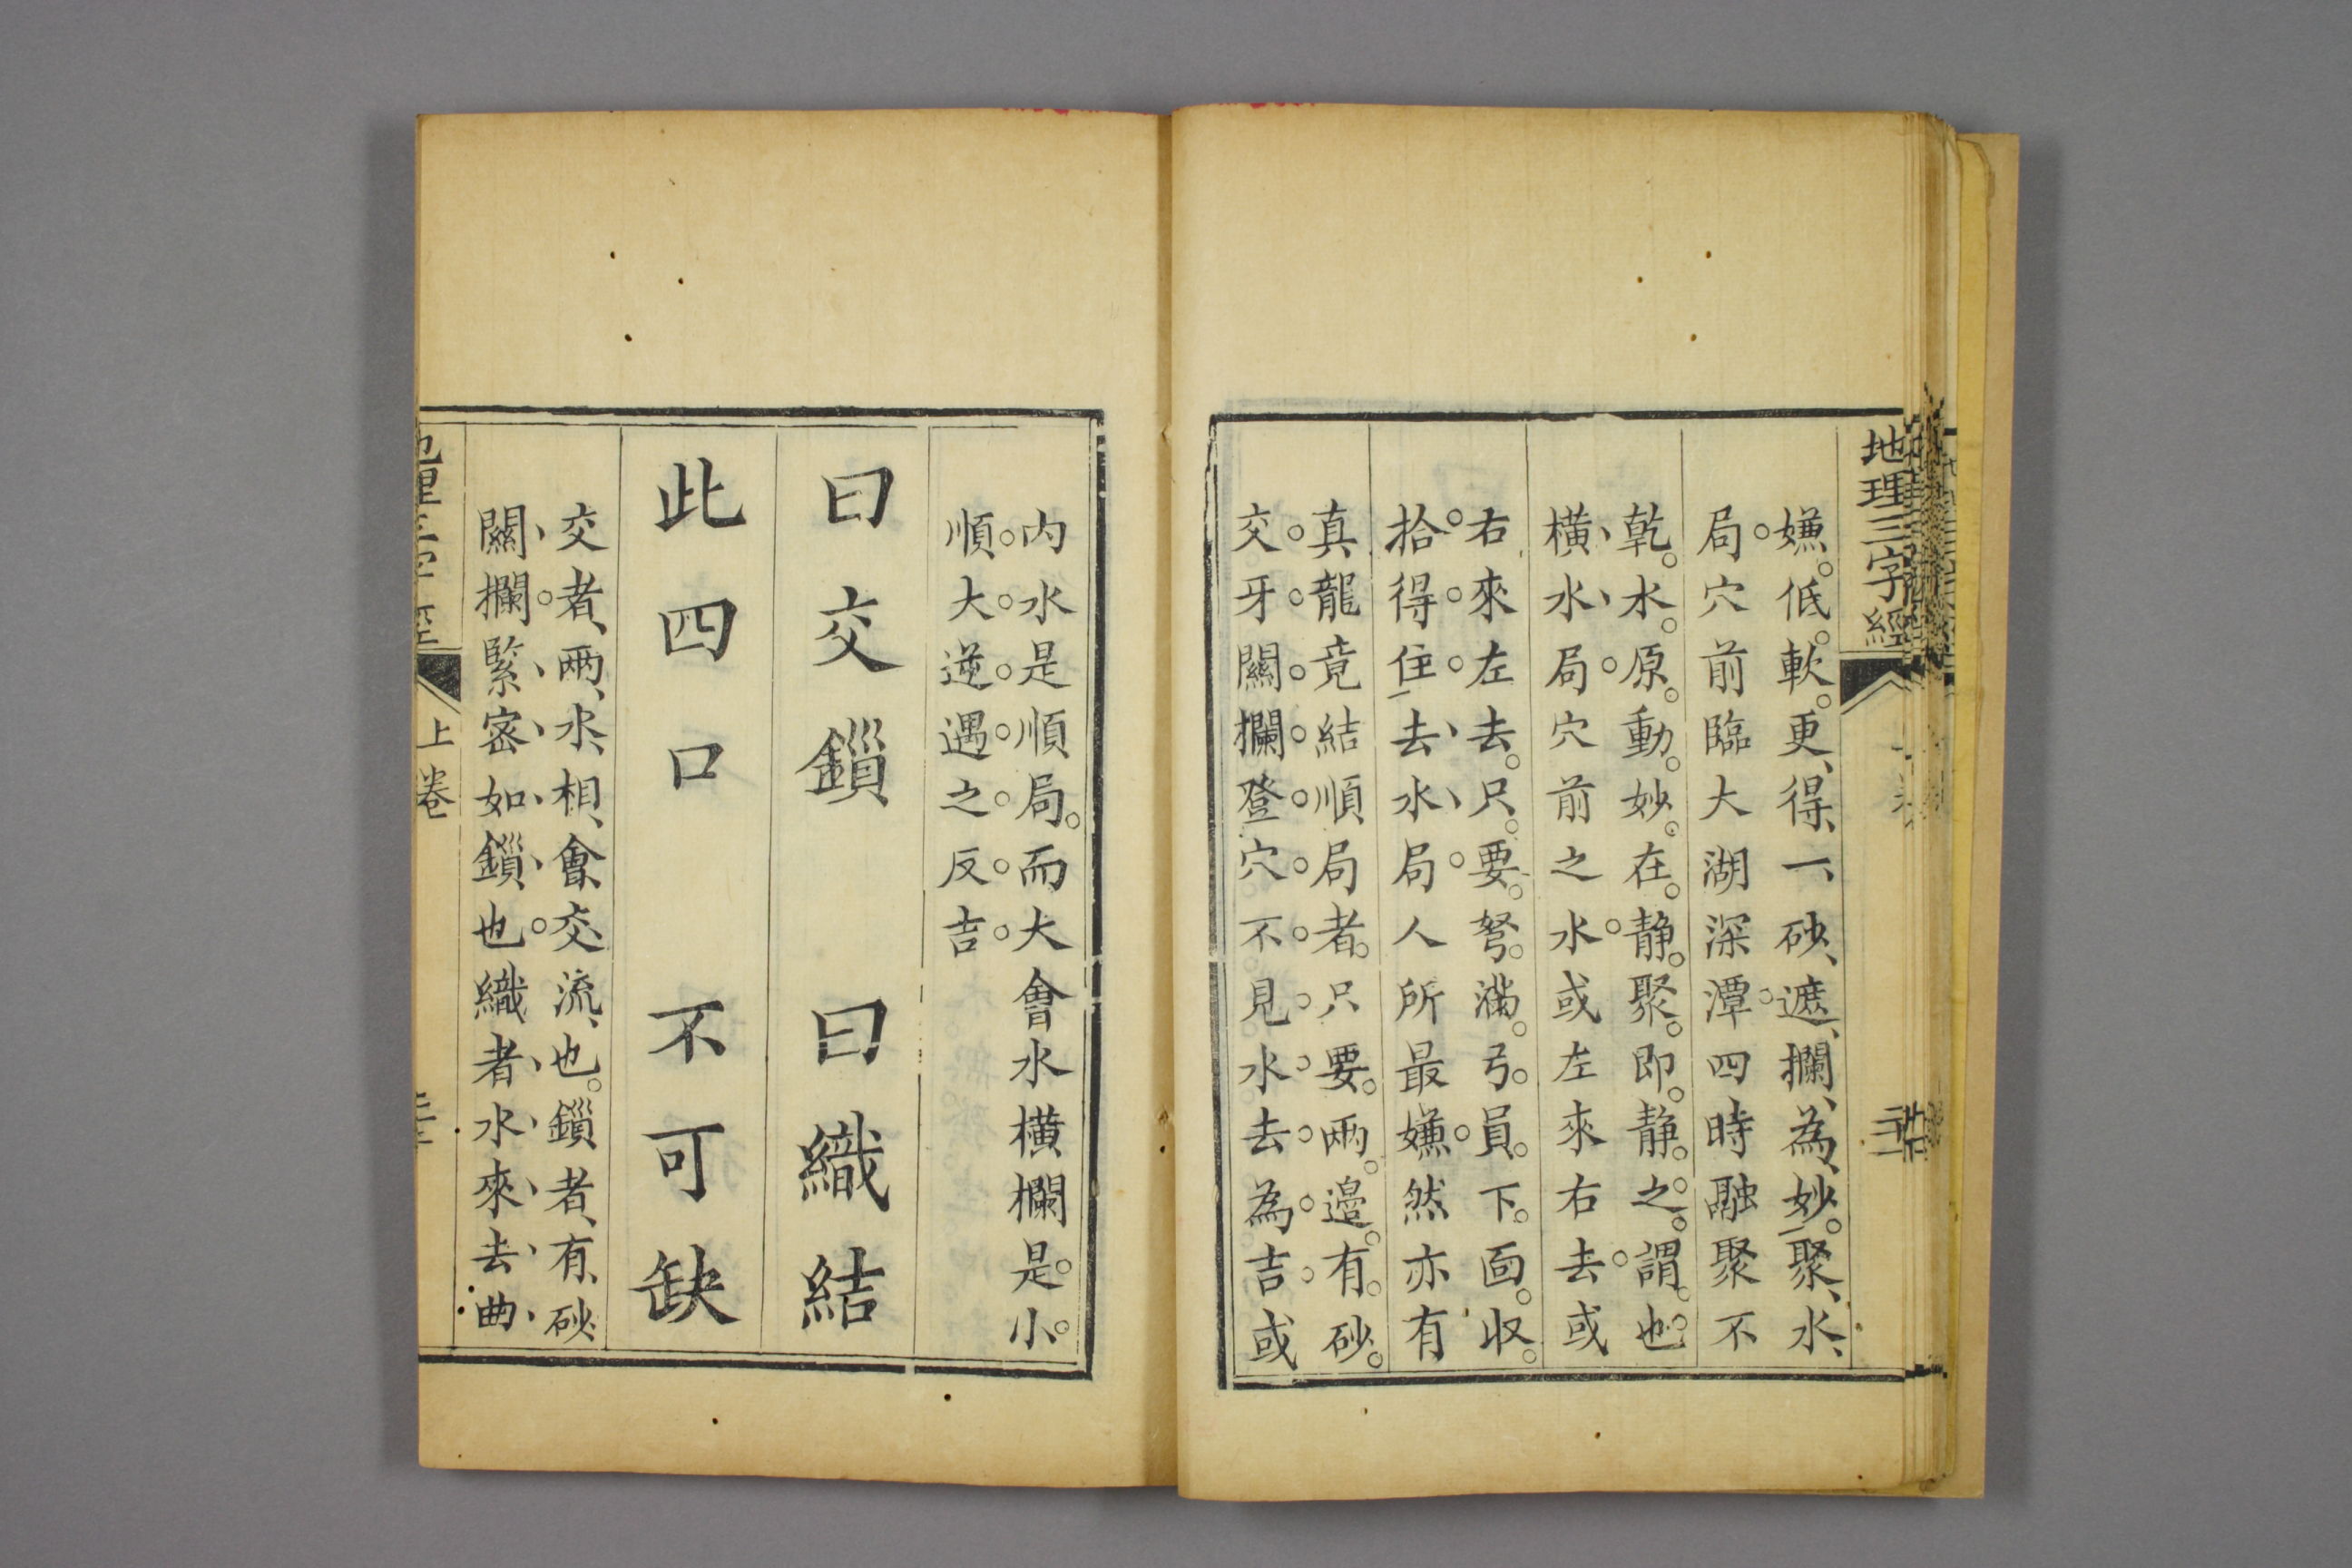 地理三字經
嫌低軟更得一砂遮攔為妙聚水
局穴前臨大湖深潭四時融聚不
乾水原動妙在静聚即静之謂也
橫水局穴前之水或左來右去或
右來左去只要弩滿弓員下面收
拾得住去水局人所最嫌然亦有
真龍竟結順局者只要兩邉有砂
交牙關攔登穴不見水去為吉或
内水是順局而大會水橫欄是小
順大逆遇之反吉
曰交鎻 曰織結
此四口 不可缺
交者兩水相會交流也鎻者有砂
關攔緊宻如鎻也織者水來去曲
上卷